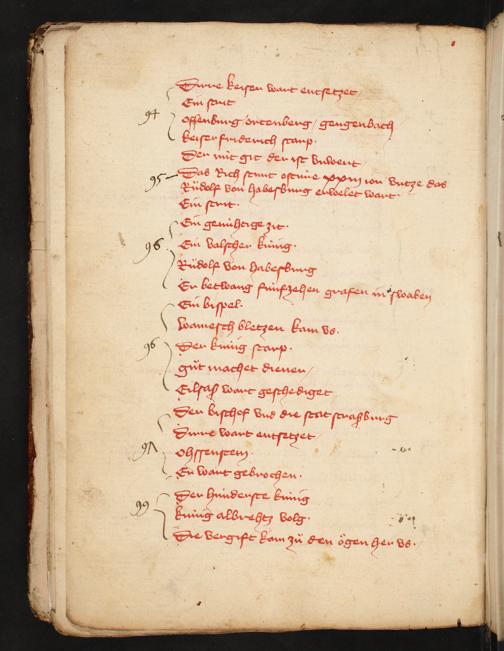 Dirre keiser wart entsetzet
Ein strit
94 Offenburg ortenberg gengenbach
keiser friderich starp.
Der nút git der ist unwert
95 Das Rich stunt ostime xxiii ior untze das
Růdolf von habesburg erwelet wart.
Ein strit.
Ein genühtige zit.
96 Ein valscher kúnig.
Růdolf von habesburg
Er betwang fúnfzehen grafen in swaben
Ein bispel.
wamesch bletzen kam us.
96 Der kúnig starp.
gůt machet diener
Eilsas wart geschediget
Der bischof und die stat strasburg
Dirre wart entsetzet
97 Ohssenstein.
Er wart gebrochen.
Der hinderste kúnig
99 kúnig albrehtz volg.
Die vergift kam zů den ögen her us.